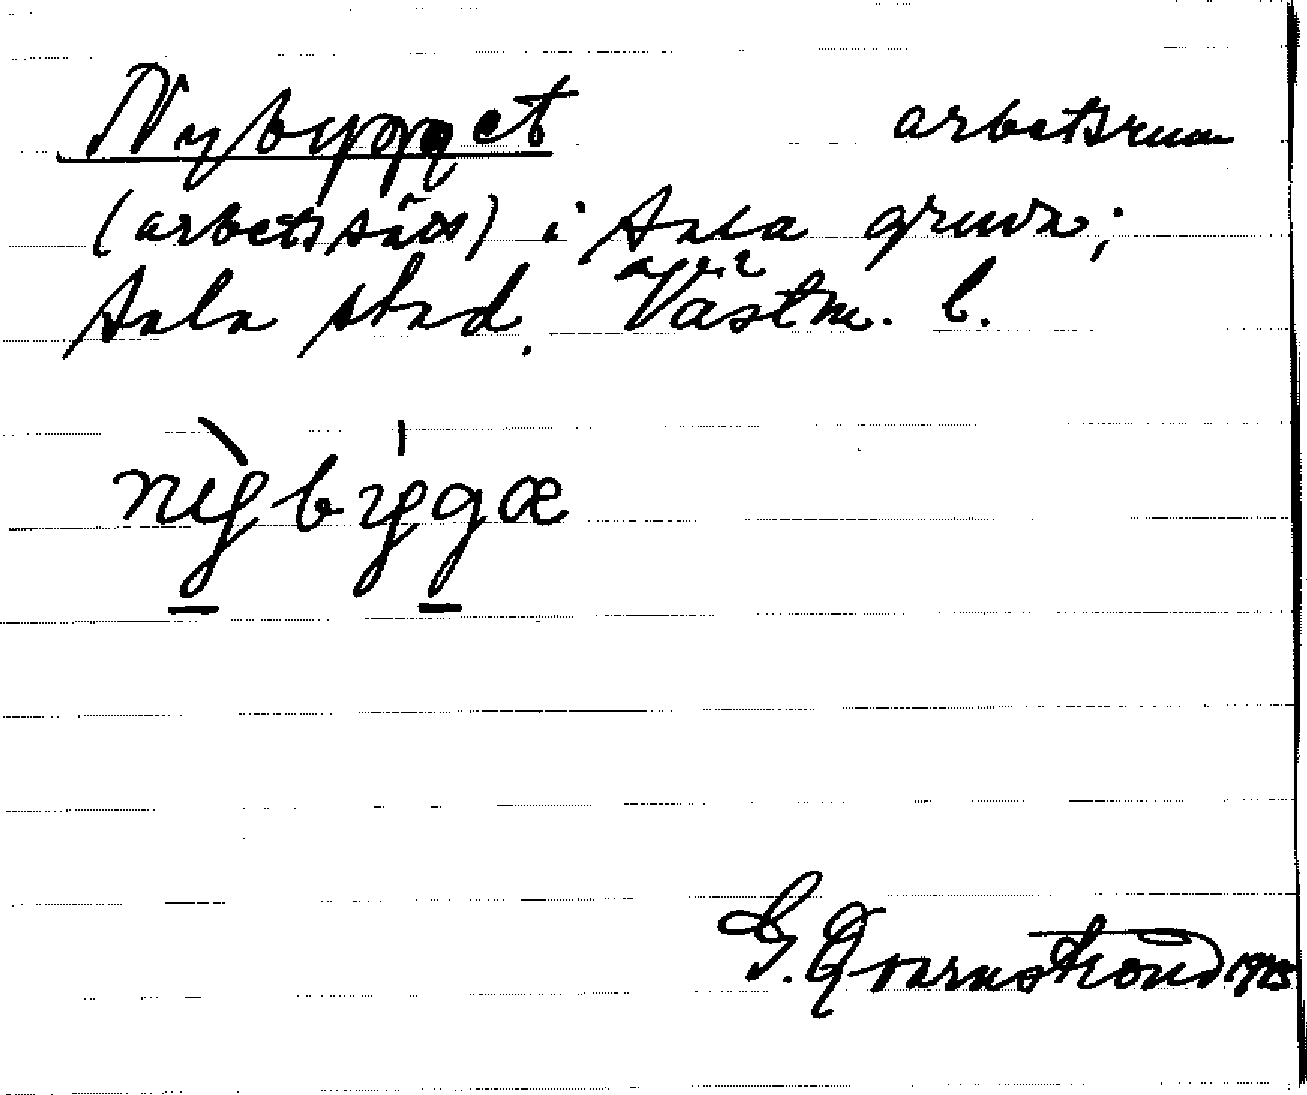 Nybygget arbetsrum
(arbetssätt) i Sala gruva;
Sala stad. Västm. l.
nybygæ
G. Qvarnström 1925